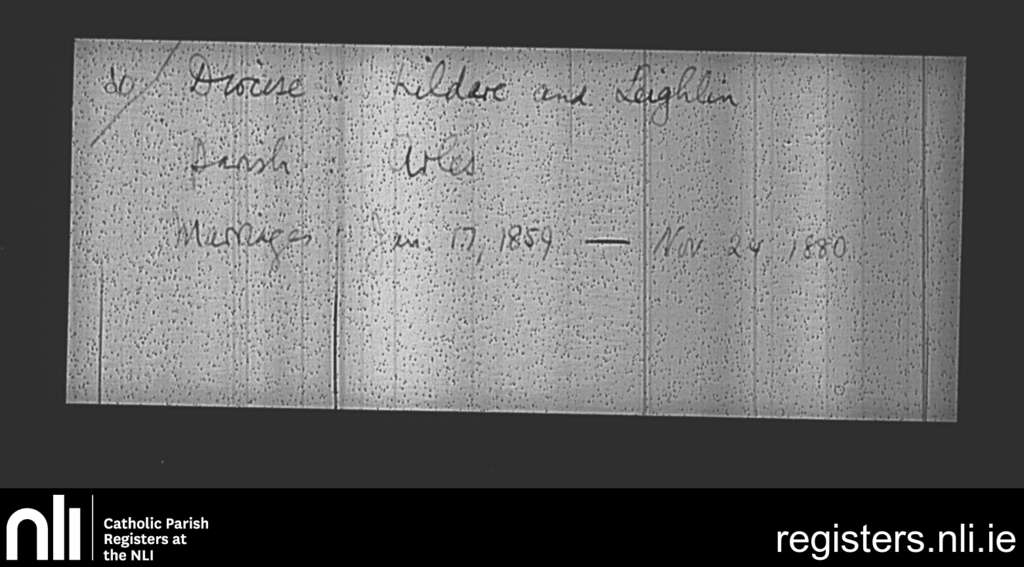 Diocese : Kildare and Leighlin
Parish : Arles
Marriages : Jan. 17, 1859 — Nov. 24 1880
nli
Catholic Parish
Registers at
the NLI
registers.nli.ie